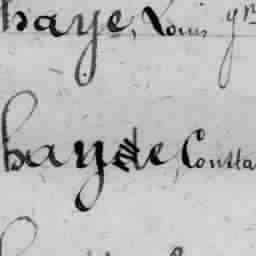 haye, Louis
haye, Consta